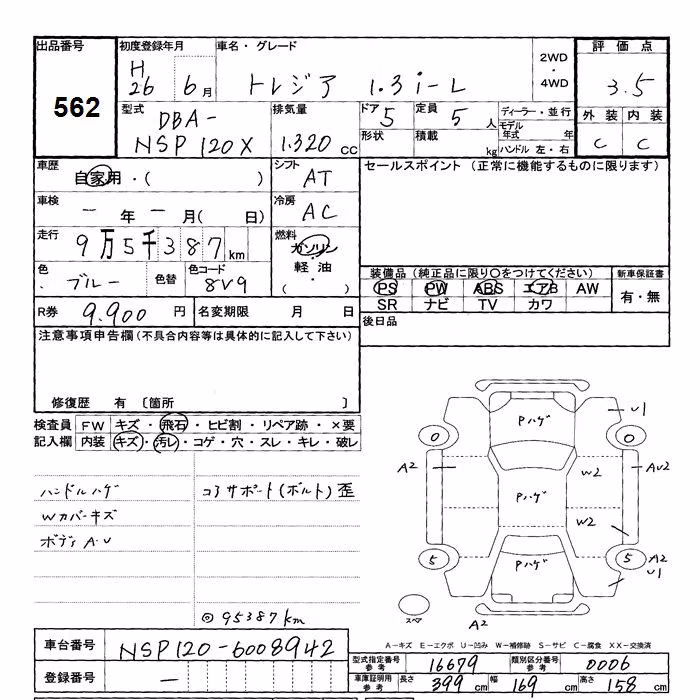 出品番号 初度登録年月 車名・グレード 2WD・4WD 評価点
562 H26 6月 トレジア 1.3 i-L 3.5
型式 DBA-NSP120X 排気量 1.320 cc ドア 5 定員 5人 ディーラー・並行 外装 内装
形状 積載 kg モデル年式 年 C C
ハンドル 左・右
車歴 自家用・( ) シフト AT セールスポイント (正常に機能するものに限ります)
車検 - 年 - 月( 日) 冷房 AC
走行 9万5千387km 燃料 ガソリン
軽油
( ・ )
色 ブルー 色替 色コード 8V9
装備品 (純正品に限り○をつけてください) 新車保証書
PS PW ABS エアB AW 有・無
SR ナビ TV カワ
R券 9.900円 名変期限 月 日 後日品
注意事項申告欄 (不具合内容等は具体的に記入して下さい)
修復歴 有 〔箇所 〕
検査員 FW キズ・飛石・ヒビ割・リペア跡・×要
記入欄 内装 キズ・汚レ・コゲ・穴・スレ・キレ・破レ
ハンドルハゲ コアサポート(ボルト)歪
Wカバーキズ
ボディA.U
◎95387km
Pハゲ U1
0 0
A2 W2 AU2
Pハゲ
W2
5 5 A2
Pハゲ U1
スペア A2
A-キズ E-エクボ U-凹み W-補修跡 S-サビ C-腐食 XX-交換済
車台番号 NSP120-6008942
登録番号 -
型式指定番号 参考 16679 類別区分番号 参考 0006
車庫証明用 参考 長さ 399cm 幅 169cm 高さ 158cm